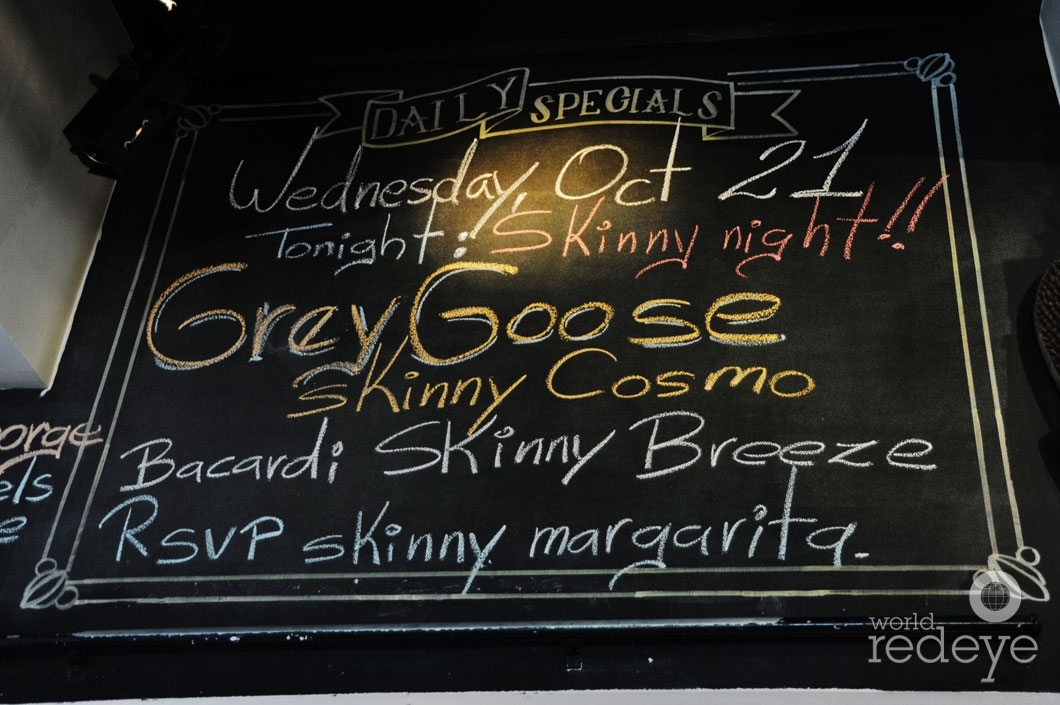 DAILY SPECIALS
Wednesday, Oct 21
Tonight: Skinny night!!
Grey Goose
skinny Cosmo
Bacardi Skinny Breeze
RSVP skinny margarita.
els
world
redeye